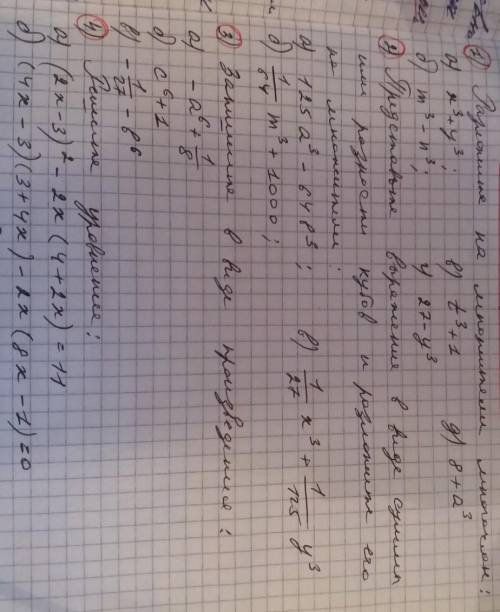 ① Разложите на множители многочлен:
а) x³+y³; в) t³+1 д) 8+a³
б) m³-n³; г) 27-y³
② Представьте выражение в виде суммы
или разности кубов и разложите его
на множители:
а) 125a³-64b³; в) 1/27 x³ + 1/125 y³
б) 1/64 m³+1000;
③ Запишите в виде произведения:
а) -a⁶+1/8
б) c⁶+1
в) -1/27-b⁶
④ Решите уравнения:
а) (2x-3)²-2x(4+2x)=11
б) (4x-3)(3+4x)-2x(8x-1)=0